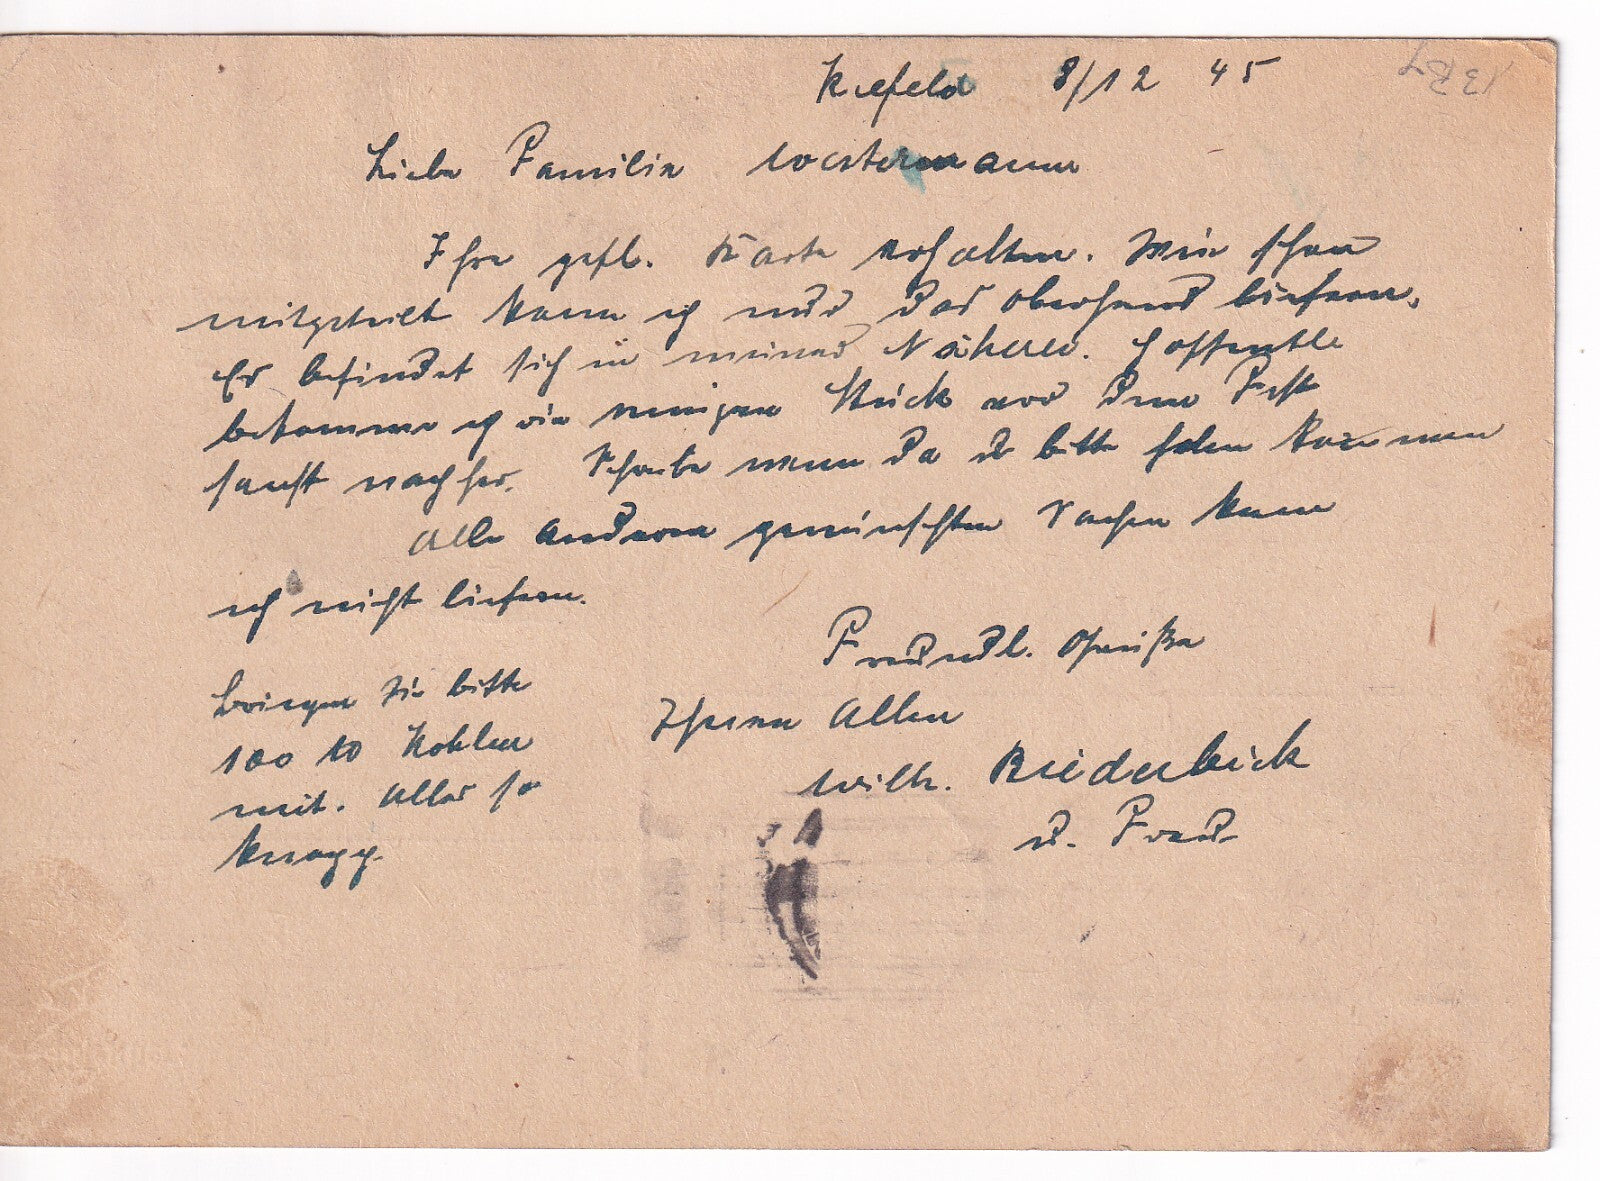 Krefeld 8/12 45
Liebe Familie Westermann
Ihre gefl. Karte erhalten. Wie schon
mitgeteilt kann ich nur das Oberhemd liefern.
Er befindet sich in meiner Näherei. Hoffentle
bekomme ich die einigen Stück vor dem Fest
sonst nachher. Schreibe wenn da ist bitte holen kommen
Alle anderen gewünschten Sachen kann
ich nicht liefern.
Freundl. Grüße
Ihnen Allen
Wilh. Riederbeick
u. Frau
Bringen Sie bitte
100 to Kohlen
mit. Alles so
knapp.
13 B 7